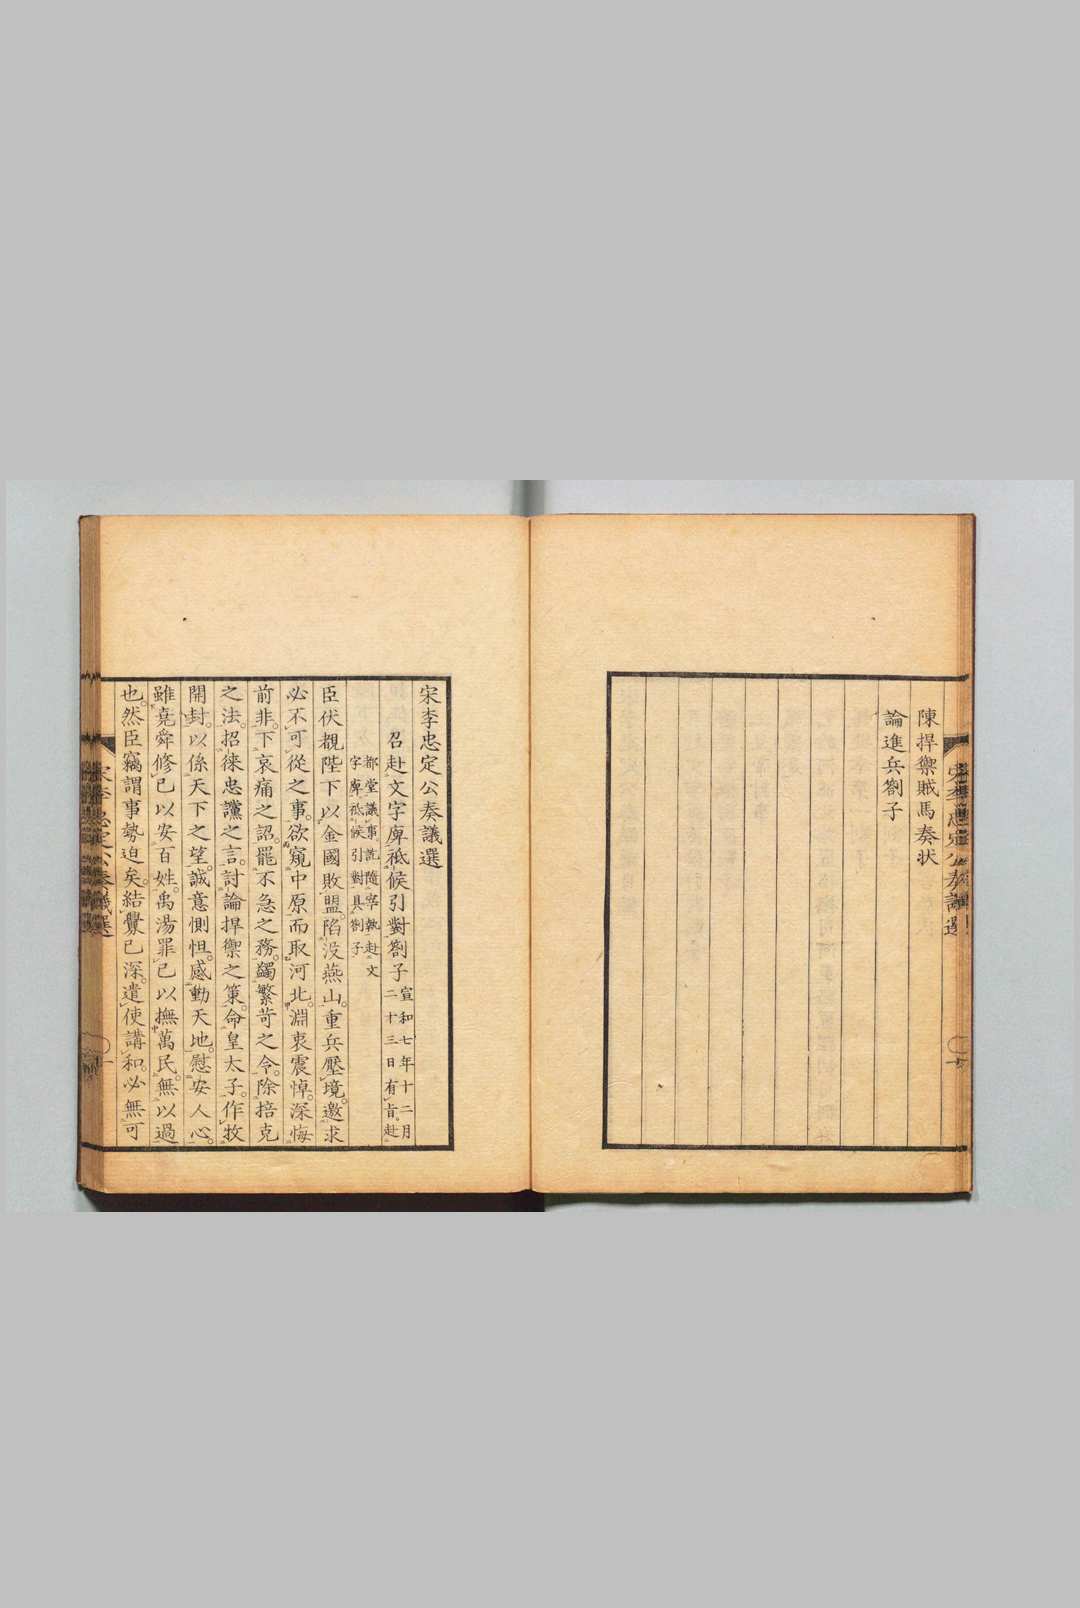 陳捍禦賊馬奏状
論進兵劄子
宋李忠定公奏議選
宋李忠定公奏議選
召赴文字庫祗候引對劄子
宣和七年十二月
二十三日有旨赴
都堂議事訖隨宰執赴文
字庫祗候引對具劄子
臣伏覩陛下以金國敗盟陷没燕山重兵壓境邀求
必不可從之事欲窺中原而取河北淵衷震悼深悔
前非下哀痛之詔罷不急之務蠲繁苛之令除掊克
之法招徠忠讜之言討論捍禦之策命皇太子作牧
開封以係天下之望誠意惻怛感動天地慰安人心
雖堯舜修己以安百姓禹湯罪己以撫萬民無以過
也然臣竊謂事勢迫矣結釁已深遣使講和必無可
宋李忠定公奏議選